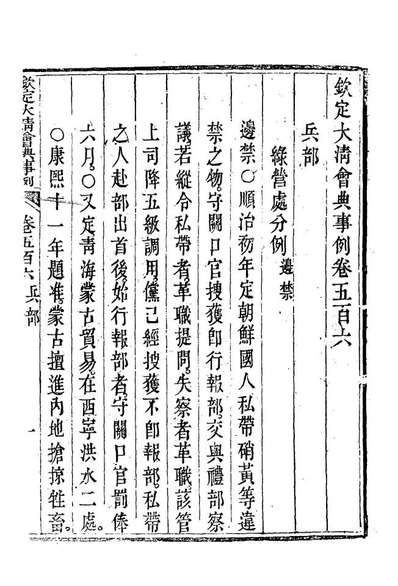 欽定大淸會典事例卷五百六
兵部
綠營處分例 邊禁
邊禁○順治初年定朝鮮國人私帶硝黃等違
禁之物守關口官搜獲卽行報部交與禮部察
議若縱令私帶者革職提問失察者革職該管
上司降五級調用儻已經搜獲不卽報部私帶
之人赴部出首後始行報部者守關口官罰俸
六月○又定靑海蒙古貿易在西寧洪水二處
○康熙十一年題准蒙古擅進內地搶掠牲畜
欽定大淸會典事例 卷五百六 兵部
一